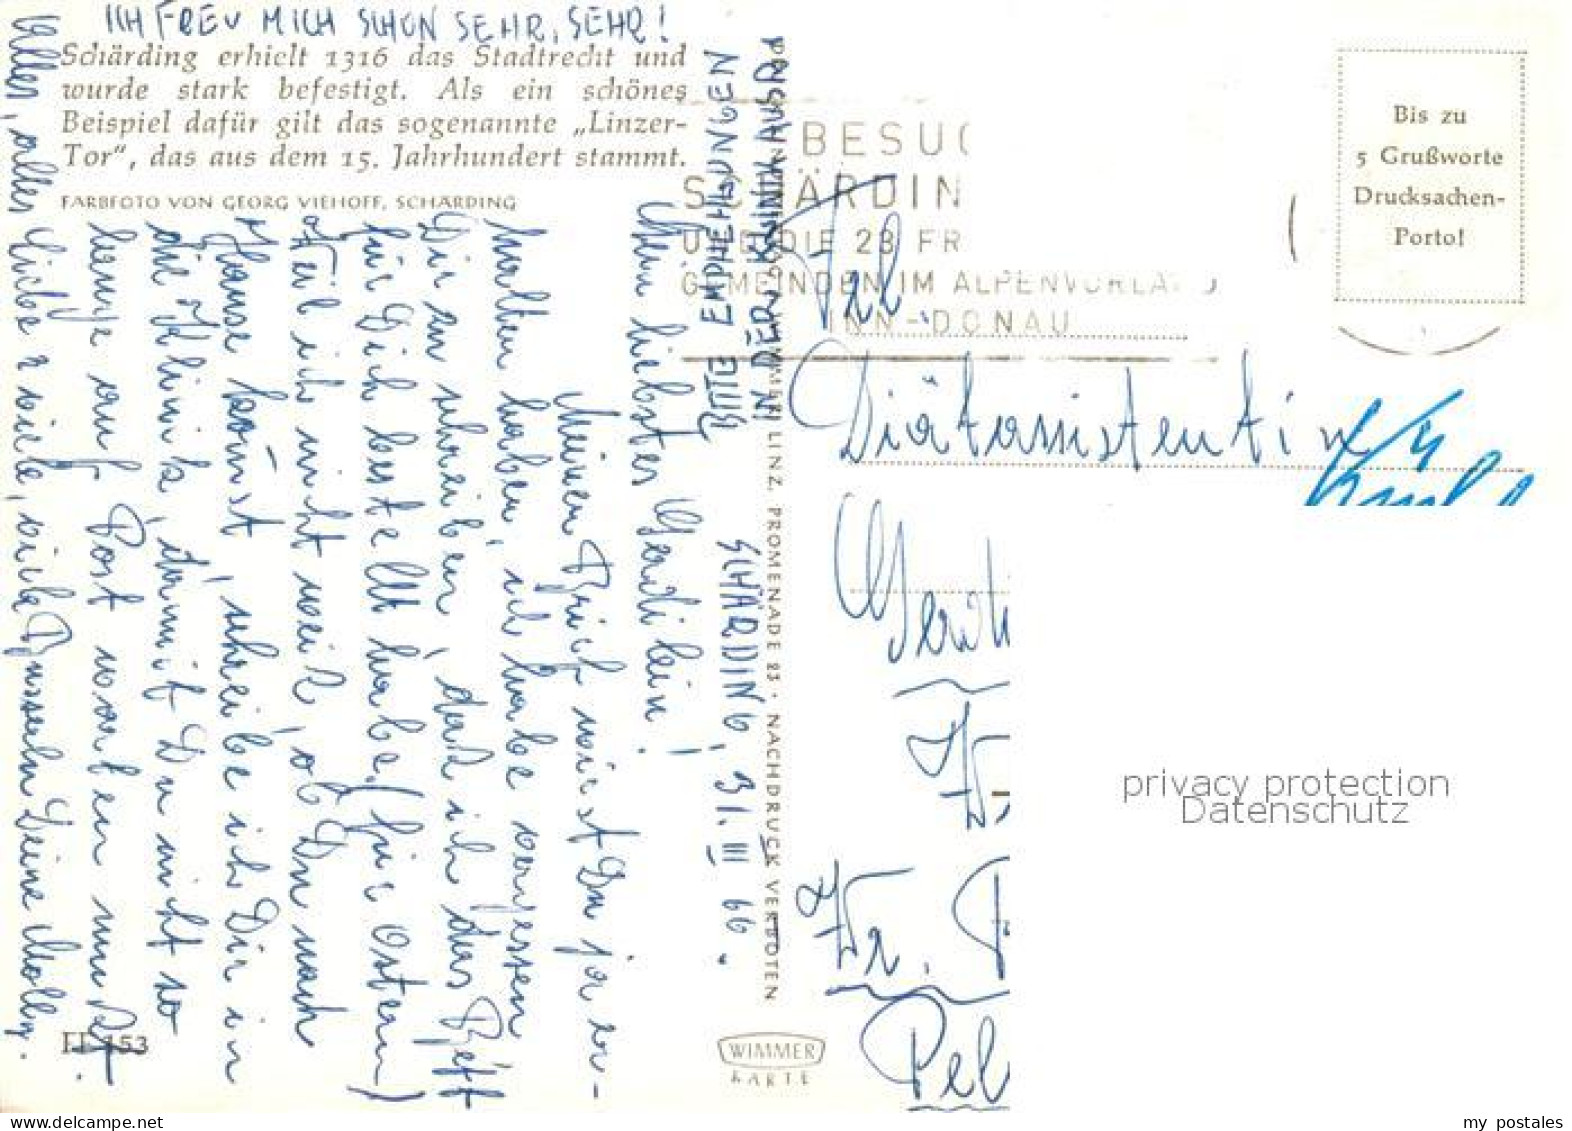 ICH FREU MICH SCHON SEHR, SEHR!
Schärding erhielt 1316 das Stadtrecht und
wurde stark befestigt. Als ein schönes
Beispiel dafür gilt das sogenannte „Linzer-
Tor“, das aus dem 15. Jahrhundert stammt.
FARBFOTO VON GEORG VIEHOFF, SCHÄRDING
SCHÄRDING, 31. III 66.
Mein liebstes Gerdilein!
Meinen Brief wirst Du ja er-
halten haben, ich habe vergessen
Dir zu schreiben, daß ich das Bett
für Dich bestellt habe. (für Ostern)
Weil ich nicht weiß, ob Du nach
Hause kommst, schreibe ich Dir in
die Klinik, damit Du nicht so
lange auf Post warten mußt.
Liebe viele, viele Busserln Deine Molly.
Alles, alles
BITTE EMPFEHLUNGEN
IN DER
LINZ, PROMENADE 23 · NACHDRUCK VERBOTEN
FF 153
WIMMER
KARTE
BESUC
SCHÄRDIN
UND DIE 28 FR
GEMEINDEN IM ALPENVORLAND
INN-DONAU
Bis zu
5 Grußworte
Drucksachen-
Porto!
Frl.
Diätassistentin
Gerdi
Fr.
Pel
privacy protection
Datenschutz
www.delcampe.net
my_postales